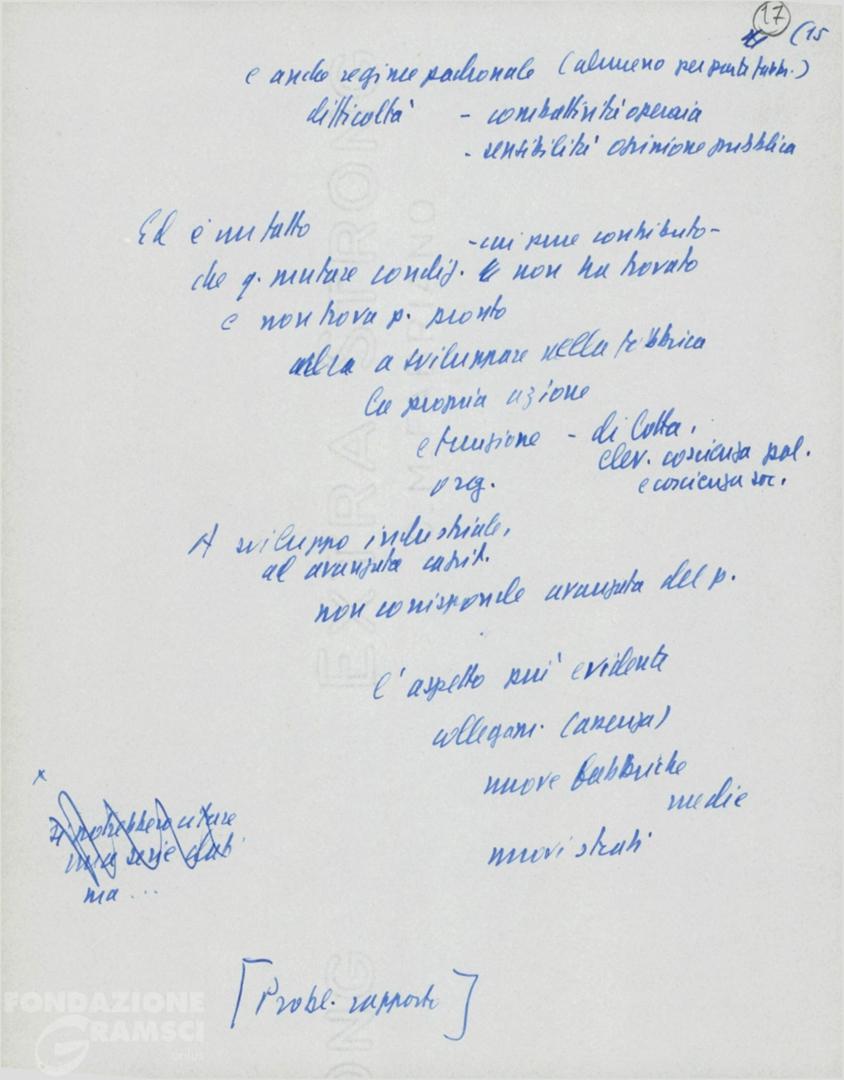 17
(15
e anche regime padronale (almeno per parte
difficoltà - combattività operaia
- sensibilità opinione pubblica
Ed è un fatto
- cui pure contributo -
che q. mutare condiz. non ha trovato
e non trova p. pronto
a sviluppare nella fabbrica
la propria azione
e funsione - di lotta,
elev. coscienza pol.
org.
e coscienza soc.
A sviluppo industriale,
ad avanzata capit.
non corrisponde avanzata del p.
L'aspetto più evidente
collegam. (assenza)
nuove fabbriche
medie
nuovi strati
x
si potrebbero citare
una serie dati
ma ...
[Probl. rapporto]
EXTRA STRONG
FABRIANO
FONDAZIONE
GRAMSCI
onlus